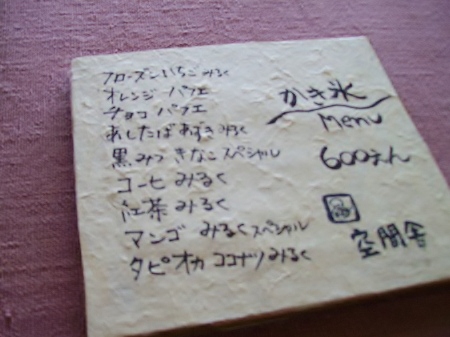 フローズンいちごみるく
オレンジ パフェ
チョコ パフェ
あしたば あずき みるく
黒みつ きなこ スペシャル
コーヒ みるく
紅茶 みるく
マンゴ みるく スペシャル
タピオカ ココナツ みるく
かき氷
Menu
600えん
空間舎